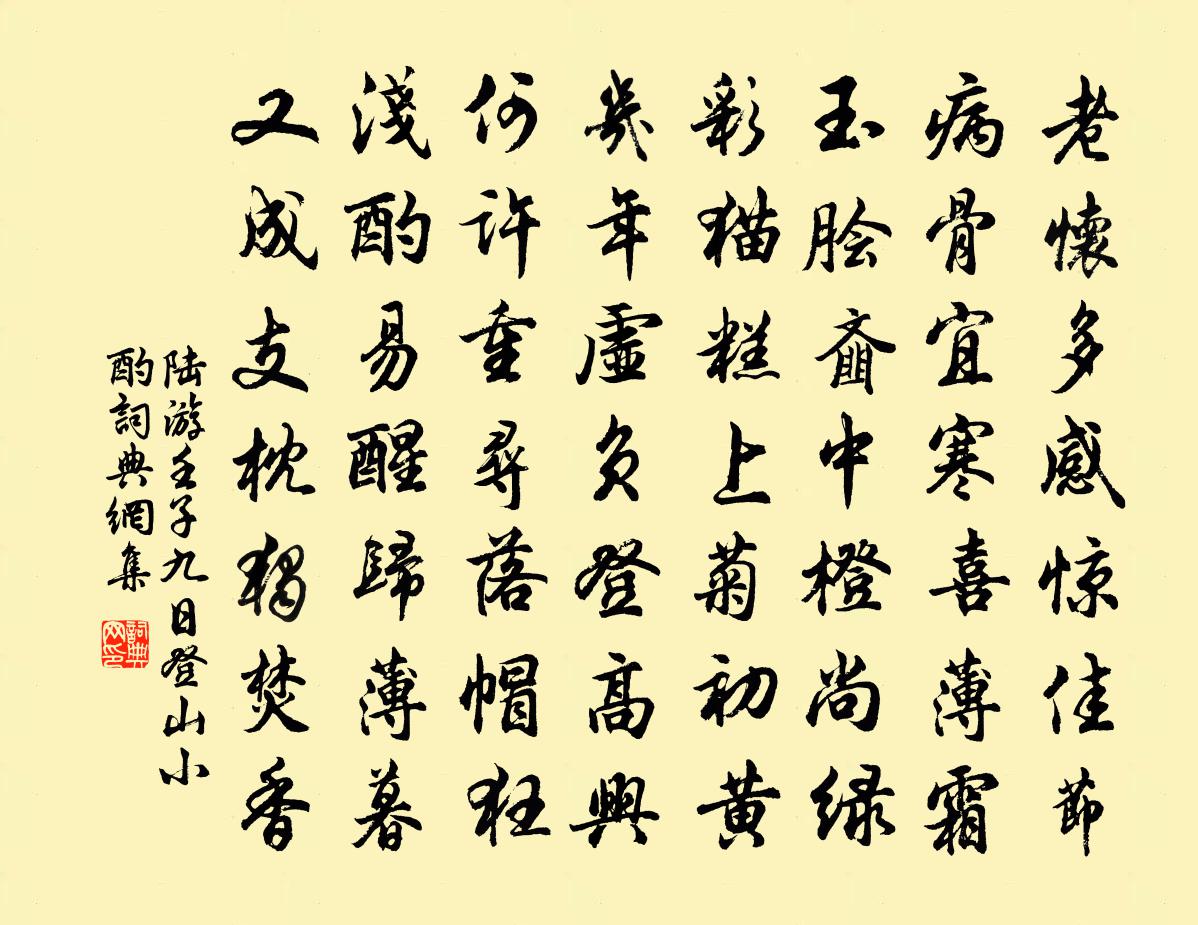 老懷多感惊佳節
病骨宜寒喜薄霜
玉脍齑中橙尚绿
彩猫糕上菊初黄
幾年虛負登高興
何許重尋落帽狂
淺酌易醒歸薄暮
又成支枕獨焚香
陆游壬子九日登山小
酌詞典網集
詞典
网印